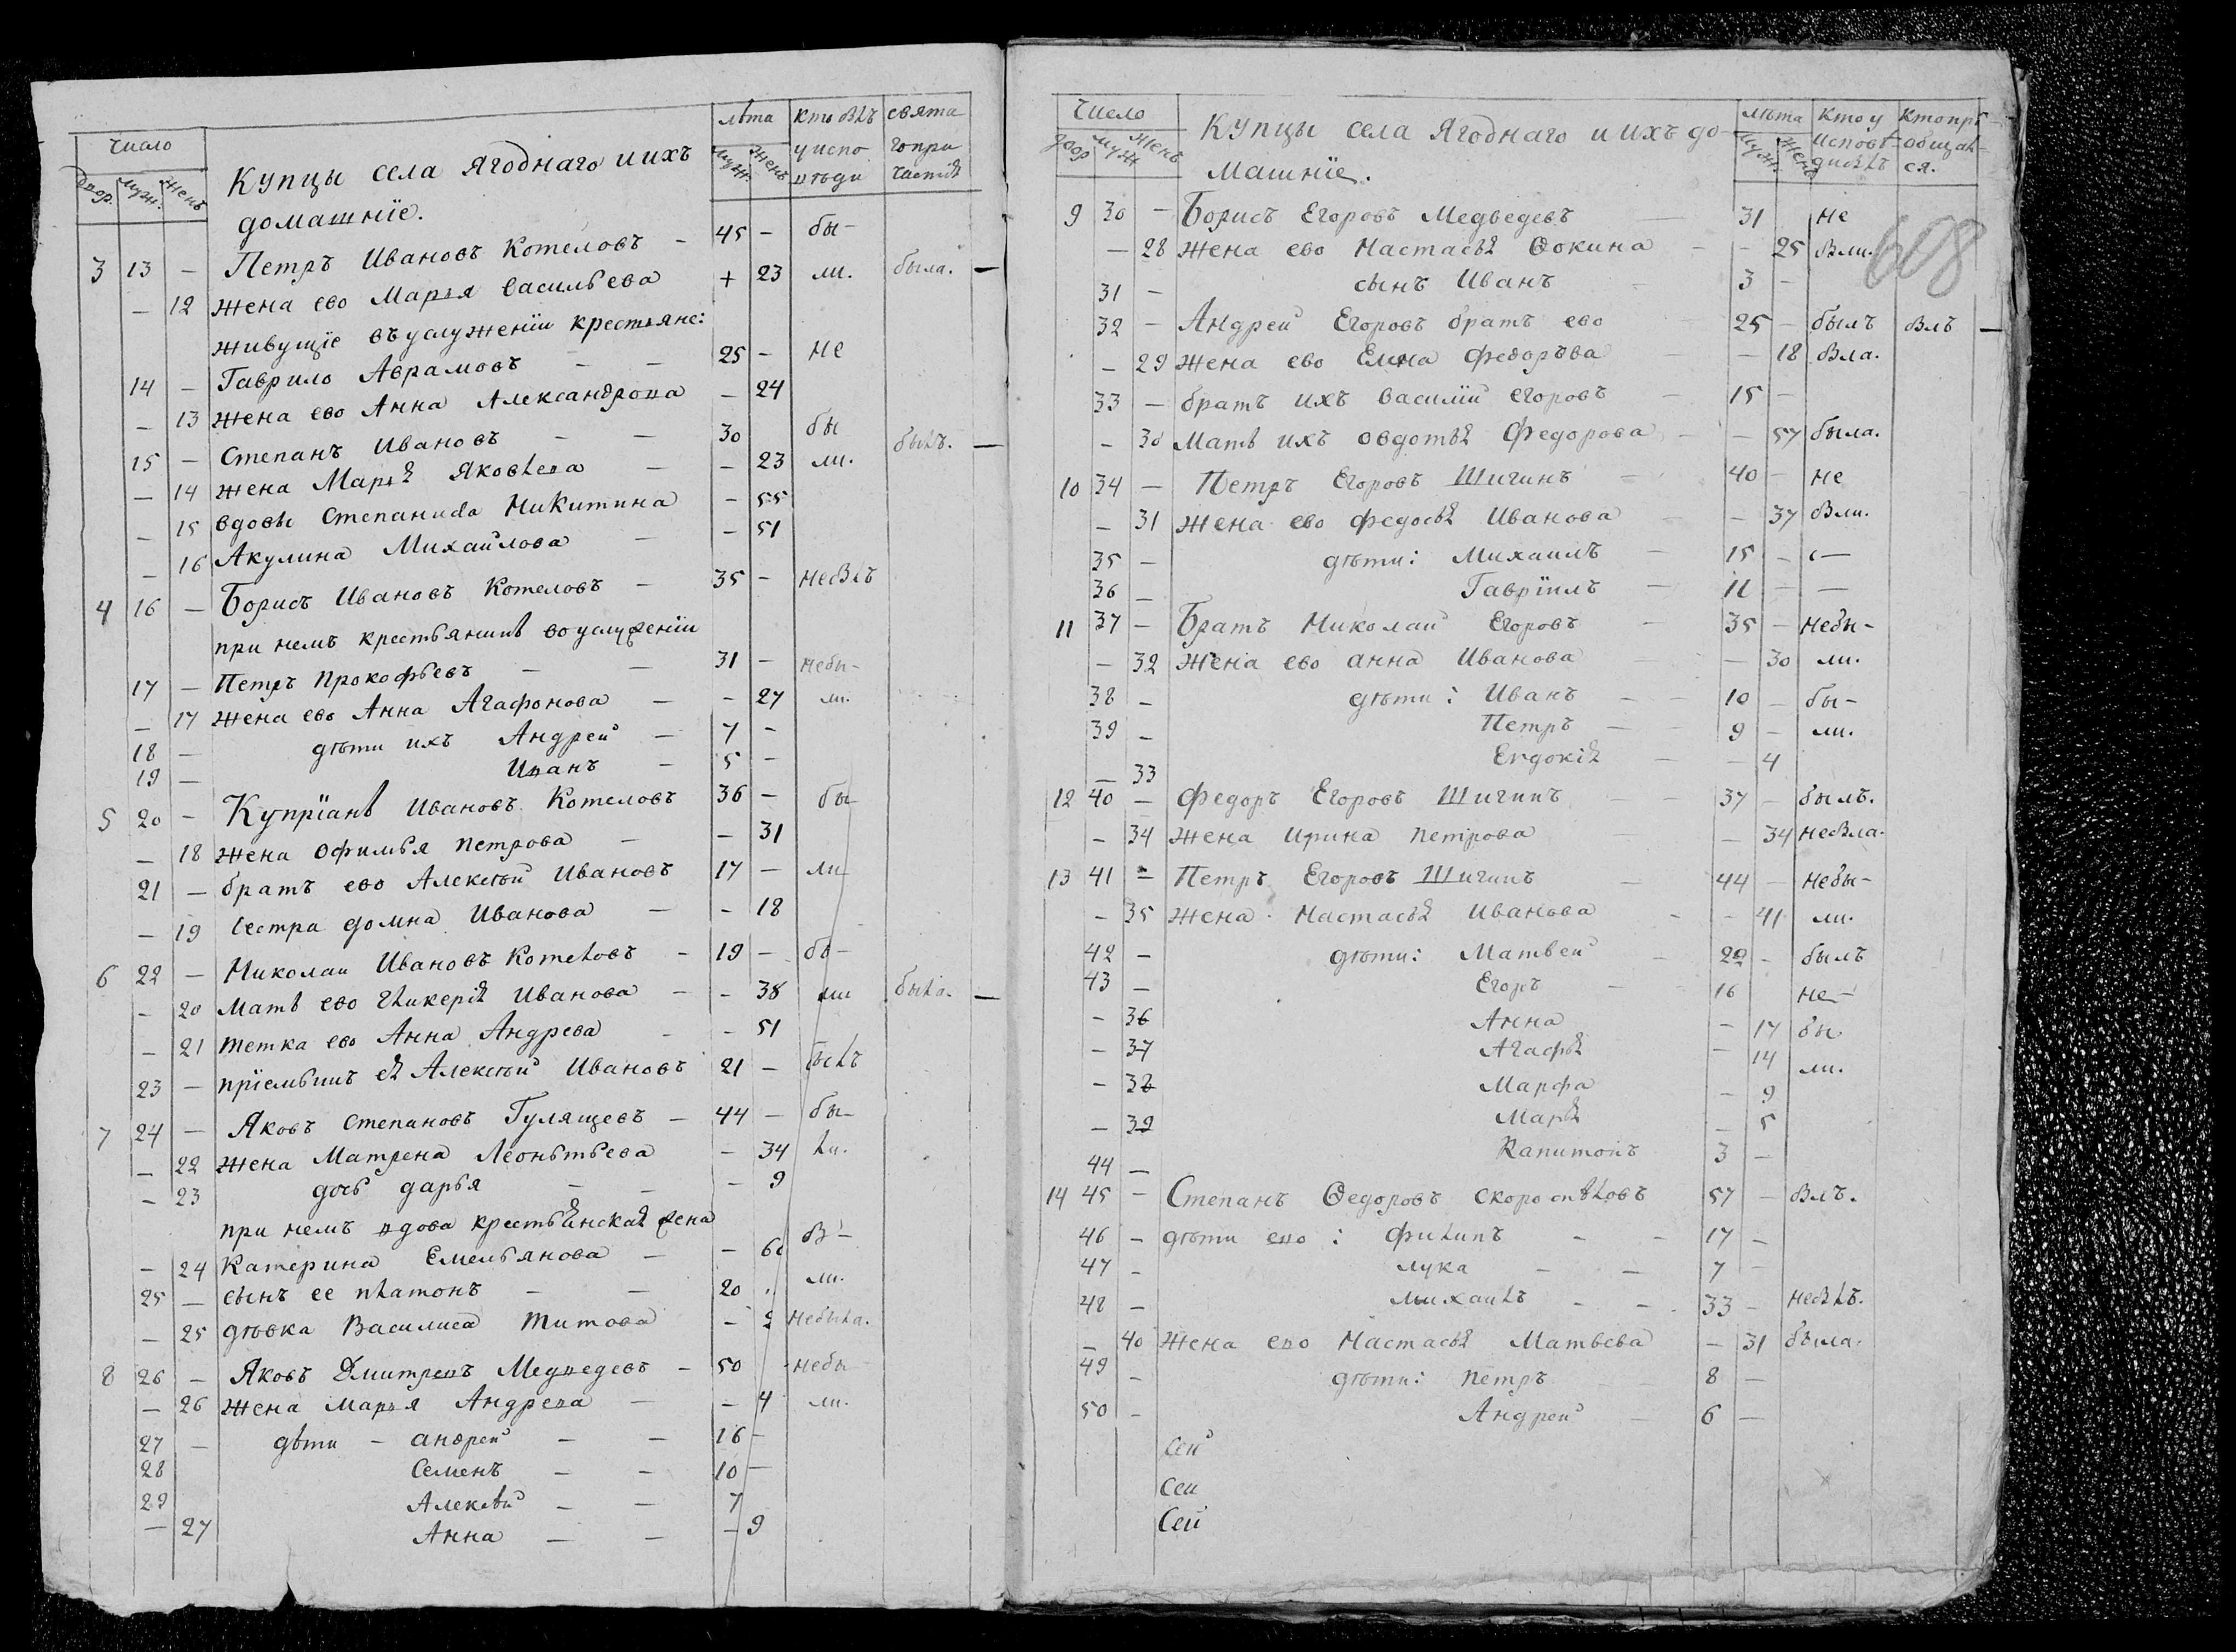 число лѣта кто былъ свята
двор. муж. женъ Купцы села Ягоднаго и ихъ муж. женъ у испо го при
домашнїе. вѣди частiя
3 13 — Петръ Ивановъ Котеловъ — 45 — бы-
— 12 жена ево Марья Васильева + 23 ли. была. —
живущїе въ услуженїи крестьяне:
14 — Гаврило Аврамовъ — — 25 — не
— 13 жена ево Анна Александрова — 24
15 — Степанъ Ивановъ — — 30 бы
— 14 жена Марья Яковлева — — 23 ли. былъ. —
— 15 вдовы Степанида Никитина — 55
— 16 Акулина Михайлова — — 51
4 16 — Борисъ Ивановъ Котеловъ — 35 — небылъ
при немъ крестьянинъ во услуженїи
17 — Петръ Прокофьевъ — — 31 — небы-
— 17 жена ево Анна Агафонова — — 27 ли.
18 — дѣти ихъ Андрей — 7 —
19 — Иванъ — 5 —
5 20 — Купрїанъ Ивановъ Котеловъ 36 — бы-
— 18 жена Офимья Петрова — — 31
21 — братъ ево Алексѣй Ивановъ 17 — ли-
— 19 сестра домна Иванова — — 18
6 22 — Николаи Ивановъ Котеловъ — 19 — бы-
— 20 мать ево Гликерiя Иванова — — 38 ли была. —
— 21 тетка ево Анна Андрева — — 51
23 — прїемышъ ея Алексѣй Ивановъ 21 — былъ
7 24 — Яковъ Степановъ Гулящевъ — 44 — бы-
— 22 жена Матрена Леоньтьева — 34 ли.
— 23 дочь дарья — — — 9
при немъ вдова крестьянская жена
— 24 Катерина Емельянова — — бы-
25 — сынъ ее платонъ — — 20 ли.
— 25 дѣвка Василиса Титова — небыла.
8 26 — Яковъ Дмитревъ Медведевъ — 50 небы-
— 26 жена марья Андрева — — 4 ли.
27 — дѣти — андрей — — 16 —
28 Семенъ — — 10 —
29 Алексѣй — — 7
— 27 Анна — — — 9
число Купцы села Ягоднаго и ихъ до лѣта кто у кто прї
двор муж женъ машнїе. муж. женъ исповѣ- общал-
дибылъ ся.
608
9 30 — Борисъ Егоровъ Медведевъ — 31 не
— 28 жена ево Настасья Ѳокина — — 25 были.
31 — сынъ Иванъ 3 —
32 — Андрей Егоровъ братъ ево 25 — былъ былъ —
— 29 жена ево Елена федорова — 18 была.
33 — братъ ихъ Василїй Егоровъ — 15 —
— 30 Мать ихъ овдотья Федорова — — 57 была.
10 34 — Петръ Егоровъ Шигинъ — 40 — не
— 31 жена ево федосья Иванова — — 37 были.
35 — дѣти: Михаилъ — 15 —
36 — Гаврїилъ — 11 — —
11 37 — Братъ Николай Егоровъ — 35 — небы-
— 32 жена ево анна Иванова — — 30 ли.
38 — дѣти: Иванъ — — 10 — бы-
39 — Петръ — — 9 — ли.
— 33 Евдокiя — — 4
12 40 — федоръ Егоровъ Шигинъ — — 37 — былъ.
— 34 жена Ирина Петрова — 34 небыла.
13 41 — Петръ Егоровъ Шигинъ — 44 — небы-
— 35 жена Настасья Иванова — — 41 ли.
42 — дѣти: Матвеи — 22 — былъ
43 — Егоръ — 16 не-
— 36 Анна — 17 бы
— 37 Агафья — 14 ли.
— 38 Марфа — 9
— 39 Марья — 5
44 — Капитонъ 3 —
14 45 — Степанъ Ѳедоровъ Скороспѣловъ 57 — былъ.
46 — дѣти ево: филипъ — — 17 —
47 — лука — — 7 —
48 — михаилъ — — 33 — небылъ.
— 40 жена ево Настасья Матвева — 31 была.
49 — дѣти: петръ 8 —
50 — Андрей — 6 —
Сей
Сеи
Сей